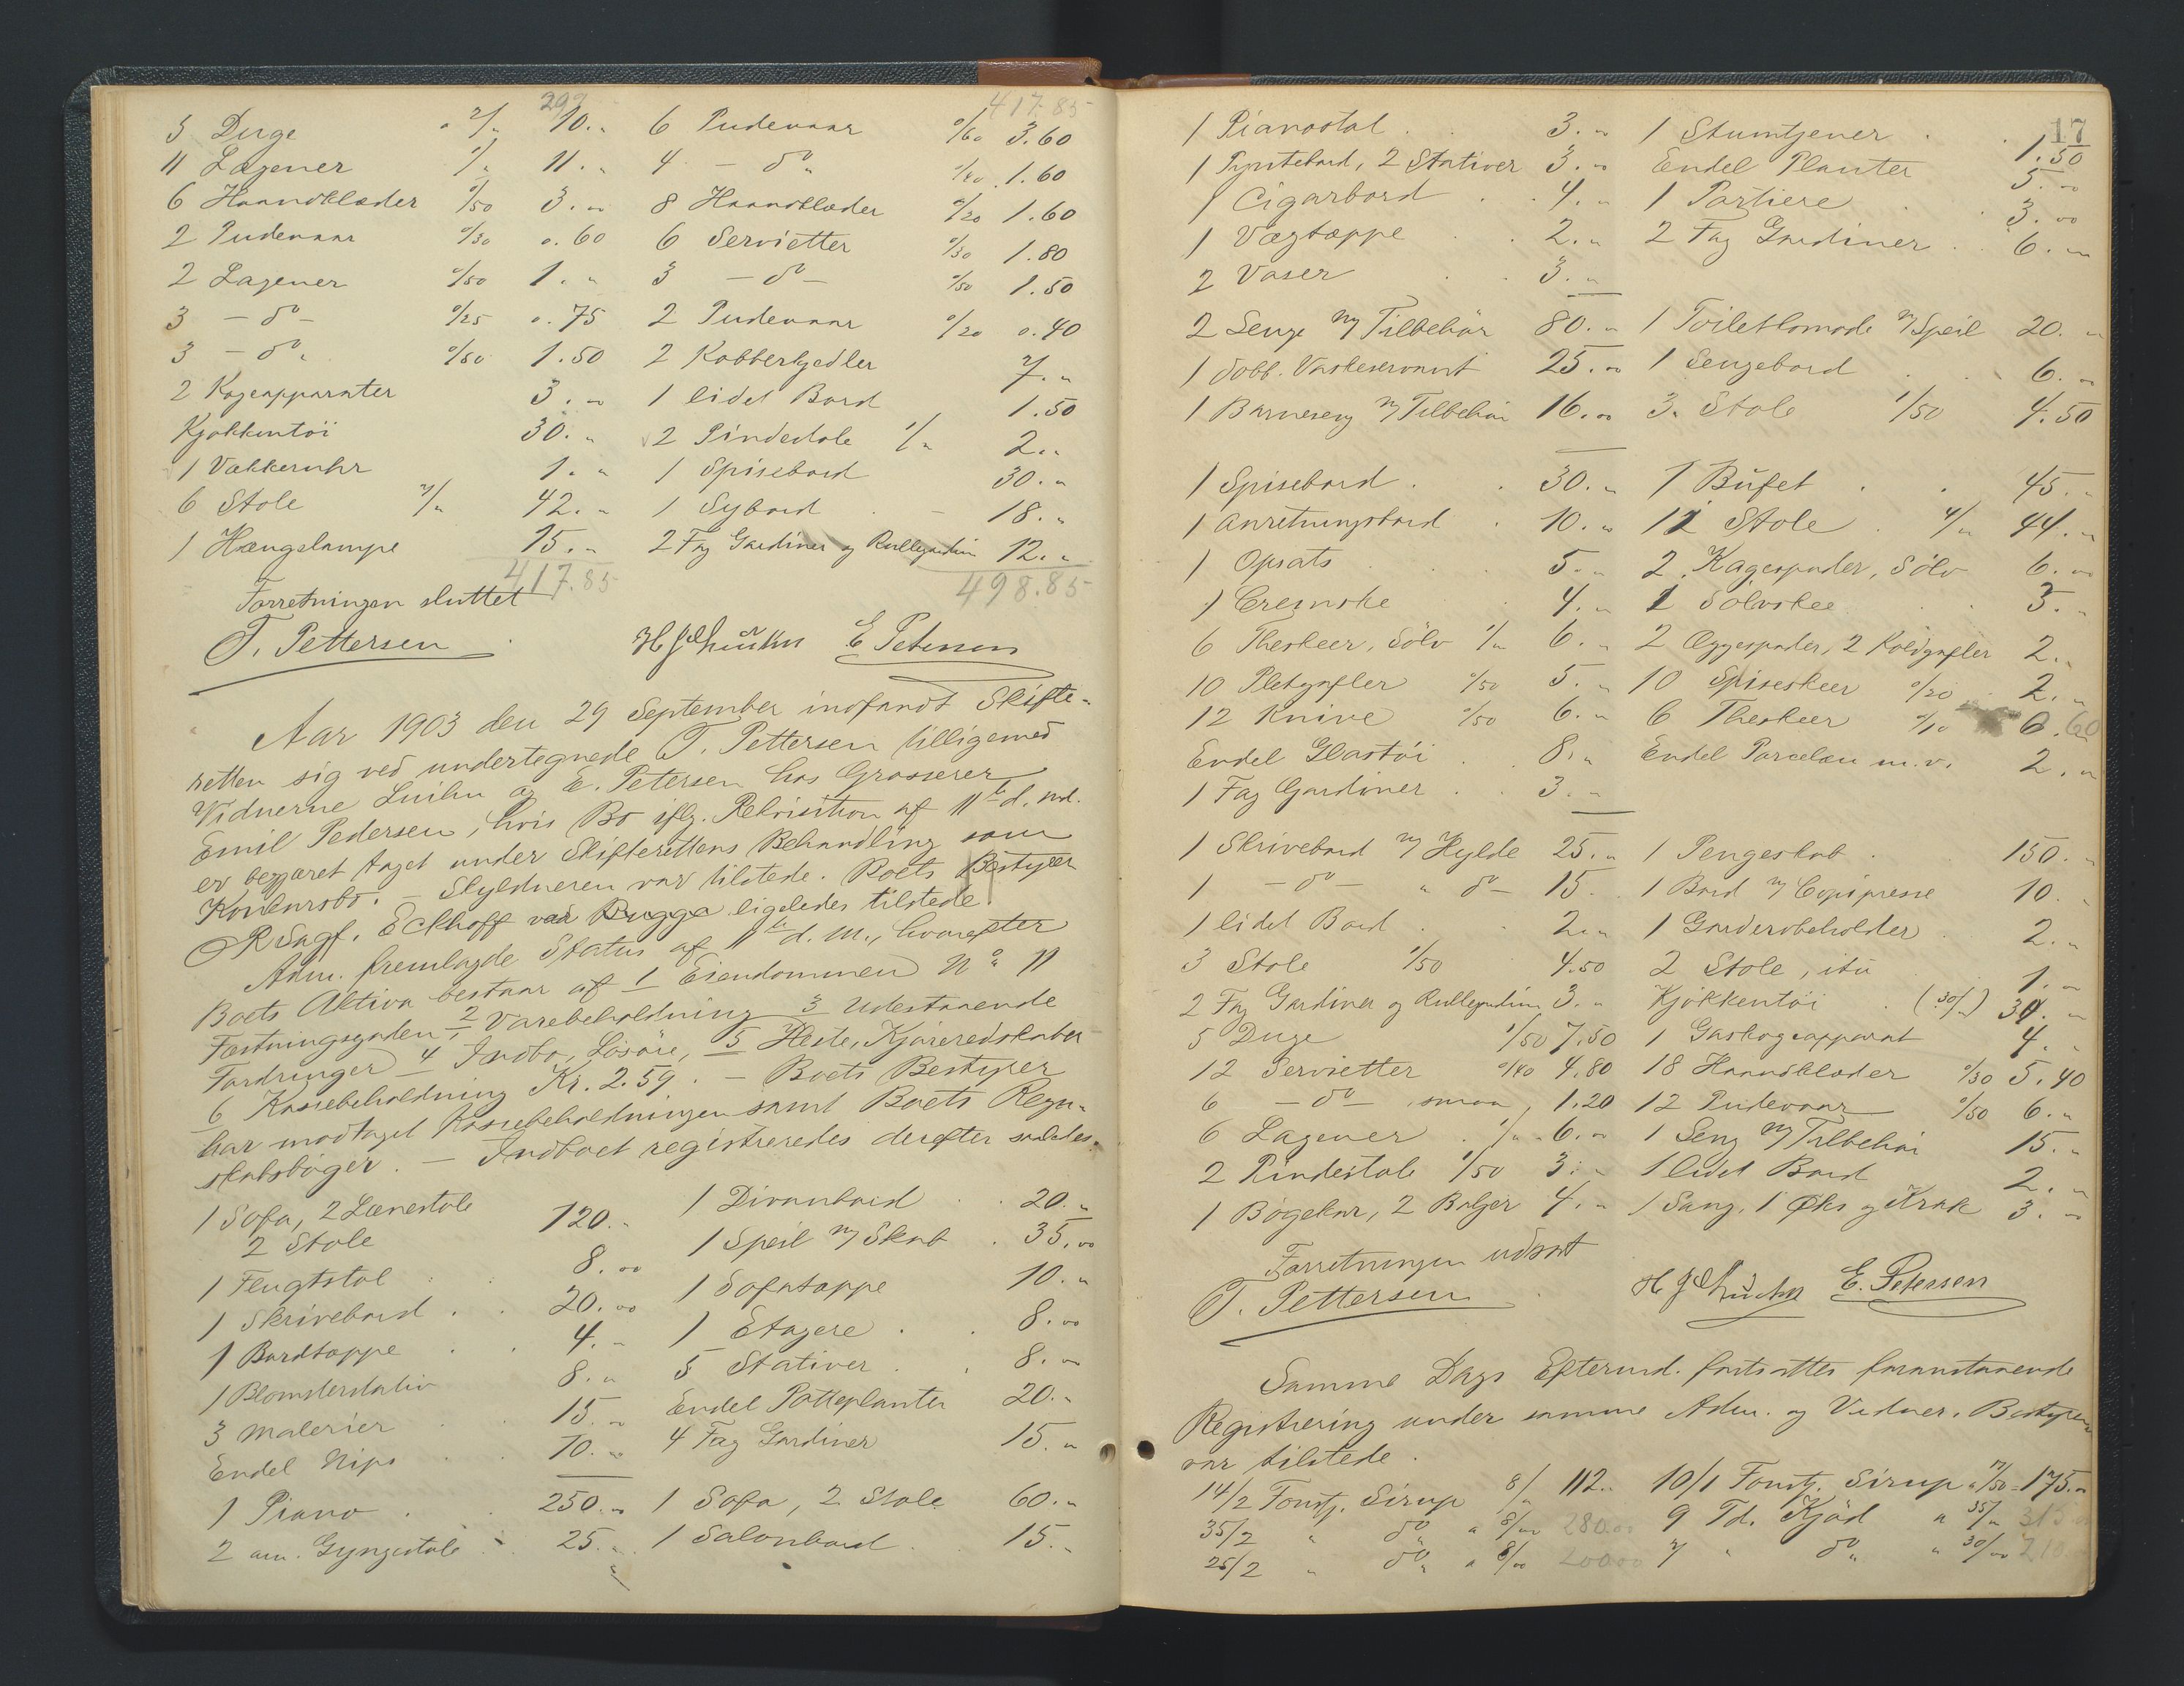 299 417.85
5 Duge " 2/" 10."
11 Lagener 1/" 11."
6 Haandklæder 0/50 3."
2 Pudevaar 0/30 0.60
2 Lagener 0/50 1."
3 — do — 0/25 0.75
3 — do " 0/50 1.50
2 Kogeapparater 3."
Kjøkkentöi 30."
1 Vækkeruhr 1."
6 Stole 7/" 42."
1 Hængelampe 15."
417.85
6 Pudevaar 0/60 3.60
4 — do " 0/40 1.60
8 Haandklæder 0/20 1.60
6 Servietter 0/30 1.80
3 — do — 0/50 1.50
2 Pudevaar 0/20 0.40
2 Kobberkjedler 7."
1 lidet Bord 1.50
2 Pindestole 1/" 2."
1 Spisebord 30."
1 Sybord 18."
2 Fag Gardiner og Rullegardin 12."
498.85
Forretningen sluttet
T. Pettersen E Petersen
Aar 1903 den 29 September indfandt Skifte-
retten sig ved undertegnede T. Pettersen tilligemed
Vidnerne og E. Petersen hos Grosserer
Emil Pedersen, hvis Bo iflg. Rekvisition af 11te d. md.
er begjæret taget under Skifterettens Behandling som
Konkursbo. — Skyldneren var tilstede. Boets Bestyrer
ORSagf. Eckhoff var Bugge ligeledes tilstede.
Adm. fremlagde Status af 11te d. M., hvorefter
Boets Aktiva bestaar af 1 Eiendommen No 11
Fæstningsgaden, 2 Varebeholdning 3 Udestaaende
Fordringer 4 Indbo, Lösöre, 5 Heste, Kjøreredskaber
6 Kassebeholdning Kr. 2.59. — Boets Bestyrer
har modtaget Kassebeholdningen samt Boets Regn-
skabsböger. — Indboet registreredes derefter saaledes:
1 Sofa, 2 Lænestole
2 Stole 120."
1 Flugtstol 8.00
1 Skrivebord 20.00
1 Bordtæppe 4."
1 Blomsterstativ 8."
3 Malerier 15."
Endel Nips 10."
1 Piano 250."
2 am. Gyngestole 25."
1 Divanbord 20."
1 Speil m/ Skab 35.00
1 Sofatæppe 10."
1 Etagere 8.00
5 Stativer 8.00
Endel Potteplanter 20."
4 Fag Gardiner 15."
1 Sofa, 2 Stole 60."
1 Salonbord 15."
17
1 Pianostol 3."
1 Pyntebord, 2 Stativer 3."
1 Cigarbord 4."
1 Vægtæppe 2."
2 Vaser 3."
1 Stumtjener 1.50
Endel Planter 5."
1 Portiere 3.00
2 Fag Gardiner 6."
2 Senge m/ Tilbehör 80."
1 dobb. Vaskeservant 25.00
1 Barneseng m/ Tilbehör 16.00
1 Toiletkomode m/ Speil 20."
1 Sengebord 6."
3 Stole 1/50 4.50
1 Spisebord 30."
1 Anretningsbord 10."
1 Opsats 5."
1 Cremske 4."
6 Theskeer, Sölv 1/" 6."
10 Pletgafler 0/50 5."
12 Knive 0/50 6."
Endel Glastöi 8."
1 Fag Gardiner 3."
1 Büfet 45."
11 Stole 4/" 44."
2 Kagespader, Sölv 6."
1 Sölvskee 3."
2 Æggespader, 2 Koldgafler 2."
10 Spiseskeer 0/20 2."
6 Theskeer 0/10 0.60
Endel Porcelæn m.v. 2."
1 Skrivebord m/ Hylde 25."
1 — do — " do — 15.
1 lidet Bord 2."
3 Stole 1/50 4.50
2 Fag Gardiner og Rullegardin 3."
5 Duge 1/50 7.50
12 Servietter 0/40 4.80
6 — do — smaa, 1.20
6 Lagener 1/" 6."
2 Pindestole 1/50 3."
1 Bögekar, 2 Baljer 4."
1 Pengeskab 150."
1 Bord m/ Copipresse 10."
1 Garderobeholder 2."
2 Stole, itu 1."
Kjökkentöi (30/") 30."
1 Gaskogeapparat 4."
18 Haandklæder 0/30 5.40
12 Pudevaar 0/50 6."
1 Seng m/ Tilbehör 15."
1 lidet Bord 2."
1 Sang, 1 Øks og Krak 3."
Forretningen udsat
T. Pettersen E. Petersen
Samme Dags Eftermd. fortsattes foranstaaende
Registrering under samme Adm. og Vidner. Bestyreren
var tilstede.
14/2 Fourtj. Sirup 8/" 112." 10/1 Fourtj. Sirup a 17/50 = 175."
35/2 " do a 8/00 280.00 9 Td. Kjöd a 35/" 315
25/2 " do " a 8/00 200.00 7 " do " " 30/00 210